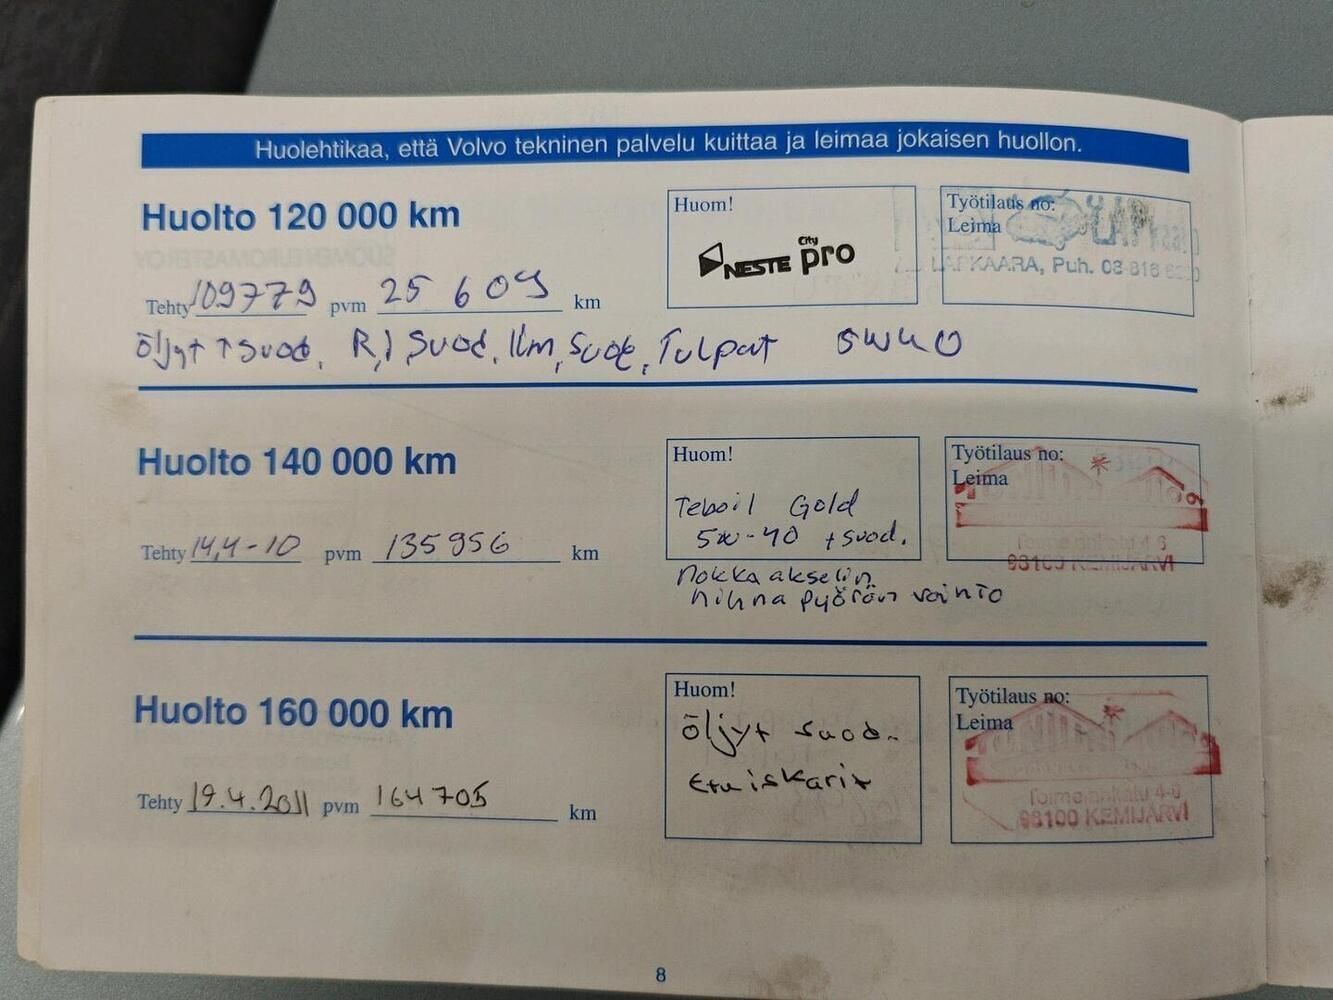 Huolehtikaa, että Volvo tekninen palvelu kuittaa ja leimaa jokaisen huollon.
Huolto 120 000 km
Huom!
NESTE City pro
Työtilaus no:
Leima
LAPKAARA, Puh. 08-816
Tehty 109779 pvm 25 6 09 km
öljyt + suod. R,I suod. Ilm, suod, Tulpat 5W40
Huolto 140 000 km
Huom!
Teboil Gold
5w-40 + suod.
nokka akselin
hihna pyörän vaihto
Työtilaus no:
Leima
98100 KEMIJÄRVI
Tehty 14,4-10 pvm 135956 km
Huolto 160 000 km
Huom!
öljyt suod.
etuiskarit
Työtilaus no:
Leima
Toimelankatu 4-6
98100 KEMIJÄRVI
Tehty 19.4.2011 pvm 164705 km
8